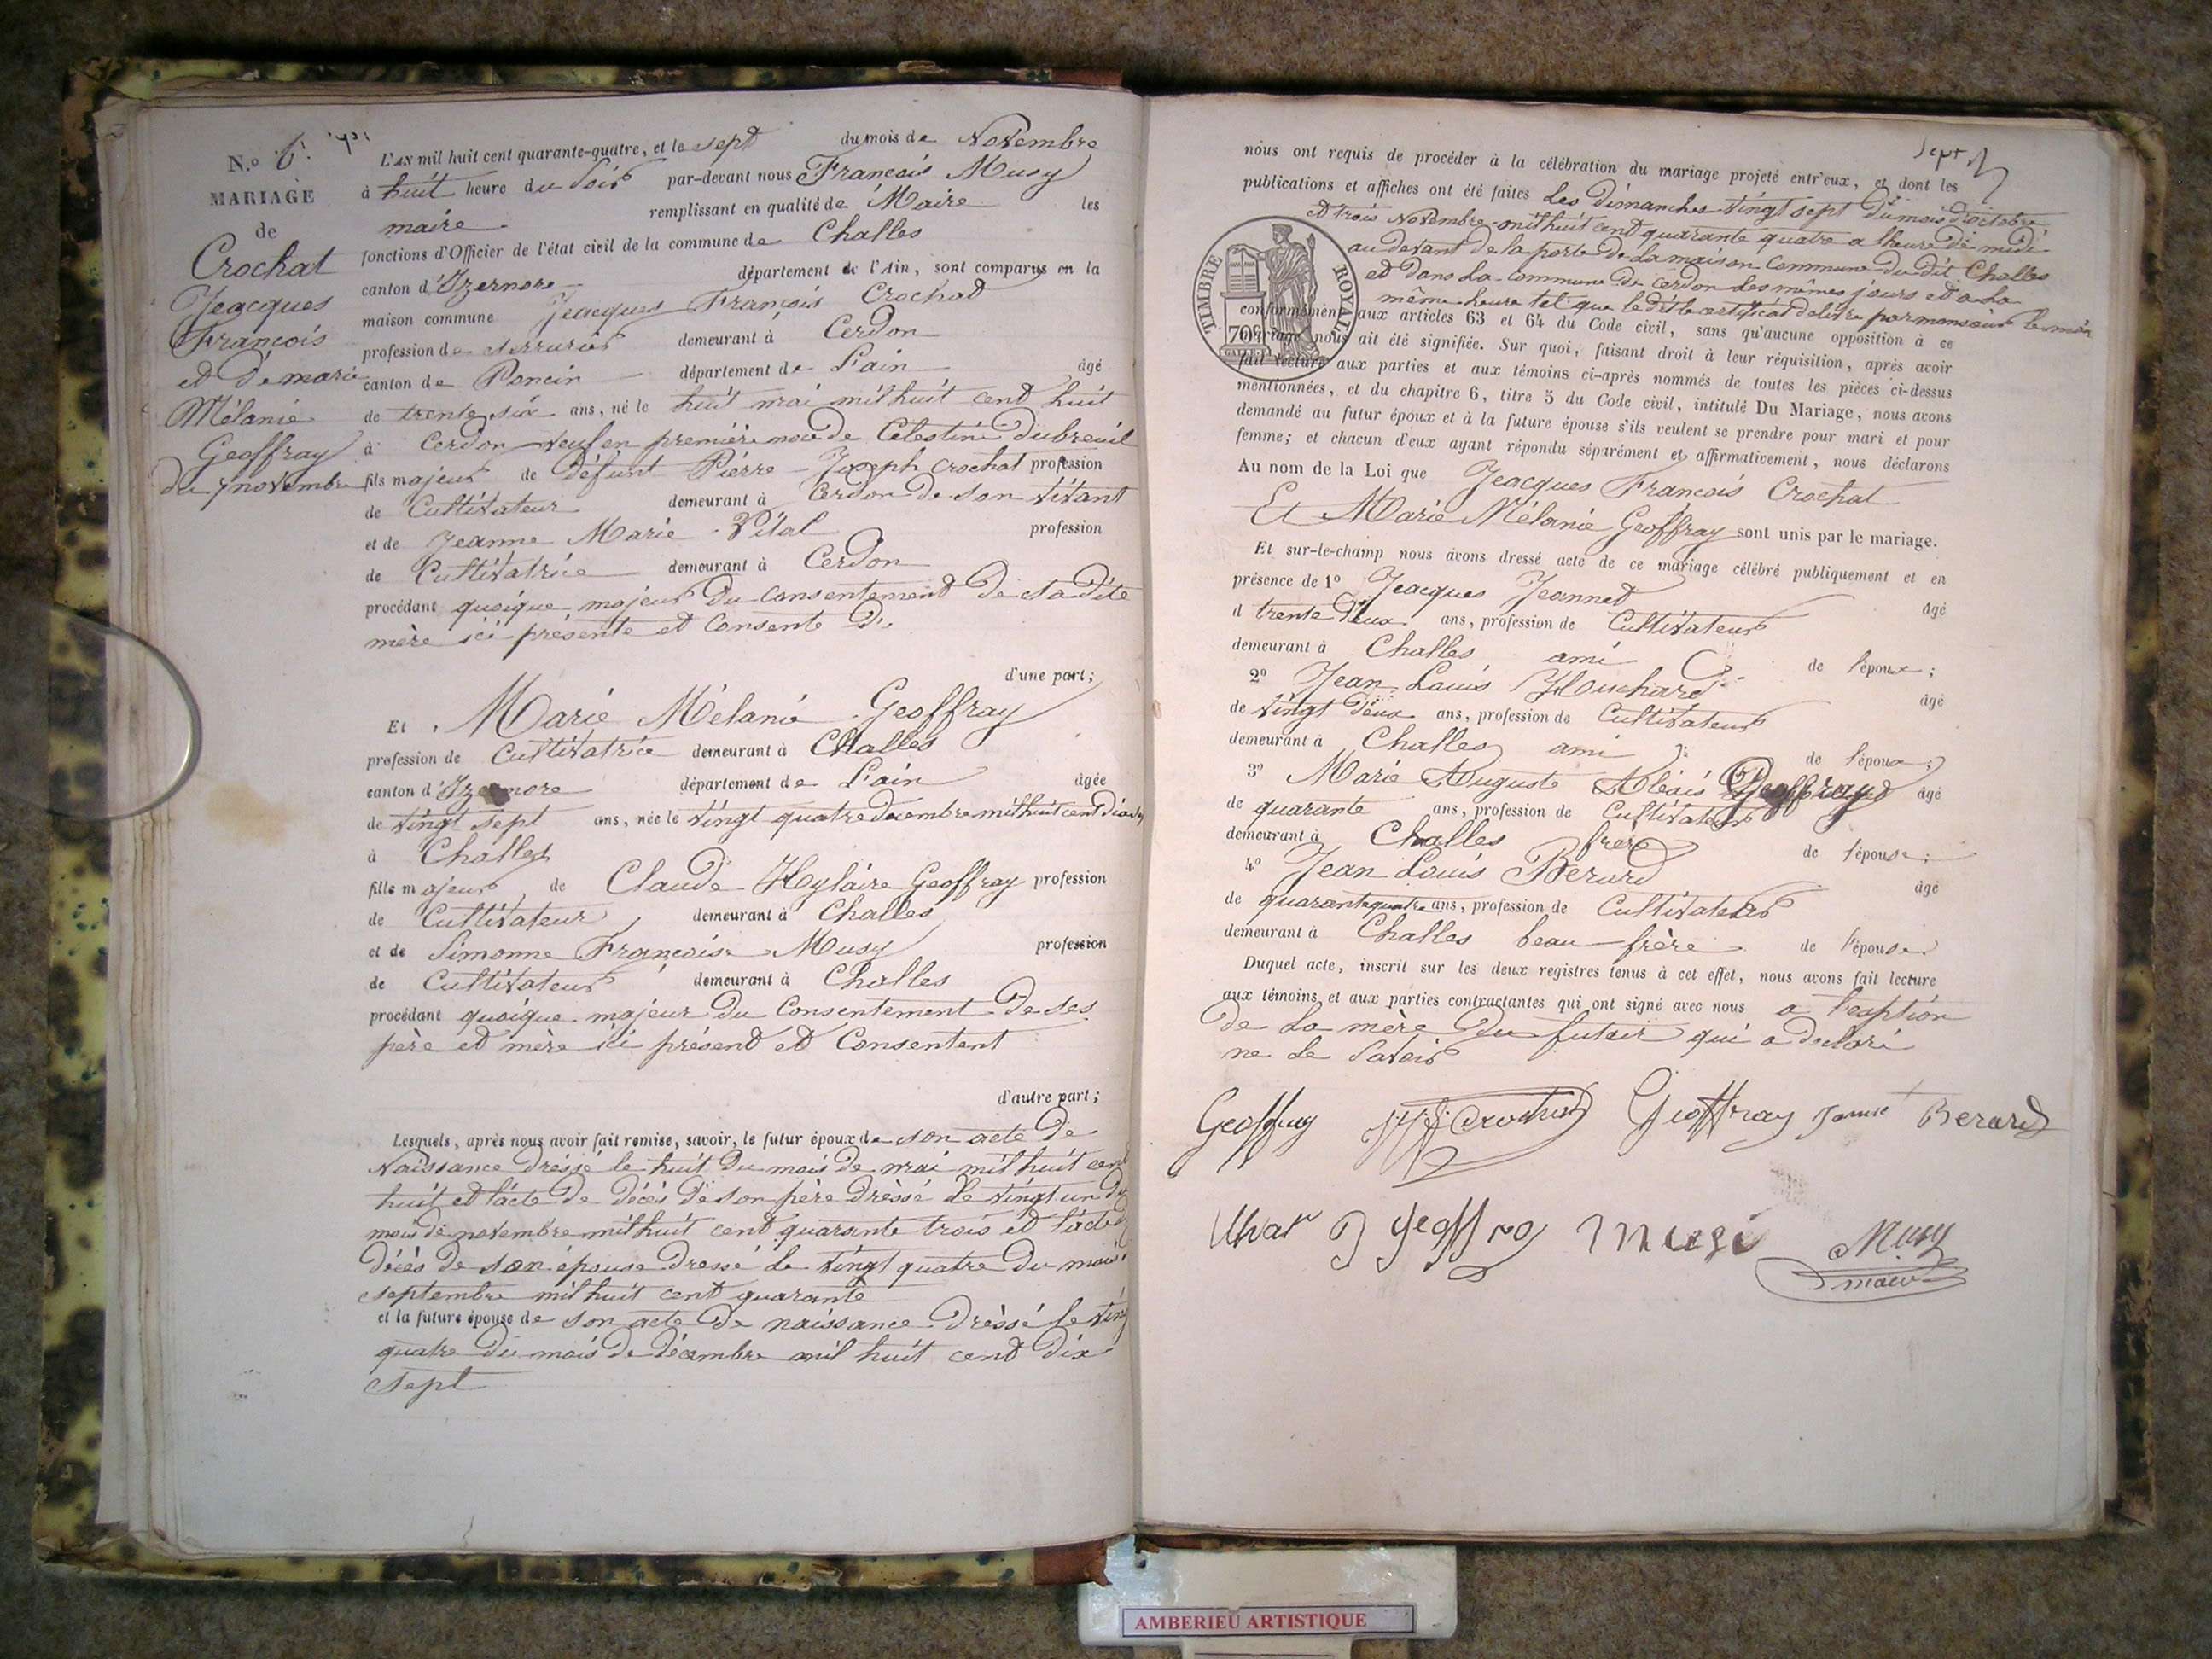 N.o 6.
MARIAGE
de
Crochat
Jeacques
François
et De marie
Mélanie
Geoffray
du 7 novembre
L'AN mil huit cent quarante-quatre, et le sept du mois de Novembre
à huit heure du soir par-devant nous François Musy
maire remplissant en qualité de Maire les
fonctions d'Officier de l'état civil de la commune de Challes
canton d'Izernore département de l'Ain, sont comparus en la
maison commune Jeacques François Crochat
profession de serrurier demeurant à Cerdon
canton de Poncin département de L'ain âgé
de trente six ans, né le huit mai mil huit cent huit
à Cerdon veuf en première noce de Celestine dubreuil
fils majeur de Défunt Pierre Joseph Crochat profession
de Cultivateur demeurant à Cerdon de son vivant
et de Jeanne Marie Vital profession
de Cultivatrice demeurant à Cerdon
procédant quoique majeur Du Consentement De sa Dite
mère ici présente et Consente
d'une part;
Et Marie Mélanie Geoffray
profession de Cultivatrice demeurant à Challes
canton d'Izernore département de L'ain âgée
de vingt sept ans, née le vingt quatre decembre mil huit cent dix
à Challes
fille majeur de Claude Hylaire Geoffray profession
de Cultivateur demeurant à Challes
et de Simonne Françoise Musy profession
de Cultivateur demeurant à Challes
procédant quoique majeur Du Consentement De ses
père et mère ici présend et Consentent
d'autre part;
Lesquels, après nous avoir fait remise, savoir, le futur époux de son acte de
Naissance dressé le huit Du mois de mai mil huit cent
huit et l'acte De Décès De son père dressé le vingt un du
mois de novembre mil huit cent quarante trois et l'acte
Décès De son épouse Dressé Le vingt quatre Du mois
septembre mil huit cent quarante
et la future épouse de son acte De naissance Dressé le
quatre Du mois De Décembre mil huit cent Dix
sept
nous ont requis de procéder à la célébration du mariage projeté entr'eux, et dont les
publications et affiches ont été faites Les Dimanches vingt sept Du mois d'octobre
et trois Novembre mil huit cent quarante quatre a lheure De midi
au devant de la porte De La maison Commune Du dit Challes
et Dans La Commune De Cerdon Les mêmes jours et a La
même heure tel que le dit le certificat délivré par monsieur le
TIMBRE ROYAL
70c
conformément aux articles 63 et 64 du Code civil, sans qu'aucune opposition à ce
mariage nous ait été signifiée. Sur quoi, faisant droit à leur réquisition, après avoir
fait lecture aux parties et aux témoins ci-après nommés de toutes les pièces ci-dessus
mentionnées, et du chapitre 6, titre 5 du Code civil, intitulé Du Mariage, nous avons
demandé au futur époux et à la future épouse s'ils veulent se prendre pour mari et pour
femme; et chacun d'eux ayant répondu séparément et affirmativement, nous déclarons
Au nom de la Loi que Jeacques François Crochat
Et Marie Mélanie Geoffray sont unis par le mariage.
Et sur-le-champ nous avons dressé acte de ce mariage célébré publiquement et en
présence de 1o Jeacques Jeannet âgé
d trente Deux ans, profession de Cultivateur
demeurant à Challes ami de l'époux;
2o Jean Louis âgé
de vingt Deux ans, profession de Cultivateur
demeurant à Challes ami de l'époux;
3o Marie Auguste Alexis Geoffray âgé
de quarante ans, profession de Cultivateur
demeurant à Challes frère de l'épouse;
4o Jean Louis Berard âgé
de quarante quatre ans, profession de Cultivateur
demeurant à Challes beau-frère de l'épouse
Duquel acte, inscrit sur les deux registres tenus à cet effet, nous avons fait lecture
aux témoins et aux parties contractantes qui ont signé avec nous a l'eaption
De La mère Du futur qui a Declaré
ne Le Savoir
Geoffray Crochat Geoffray Berard
geoffray musi Musy
maire
AMBERIEU ARTISTIQUE